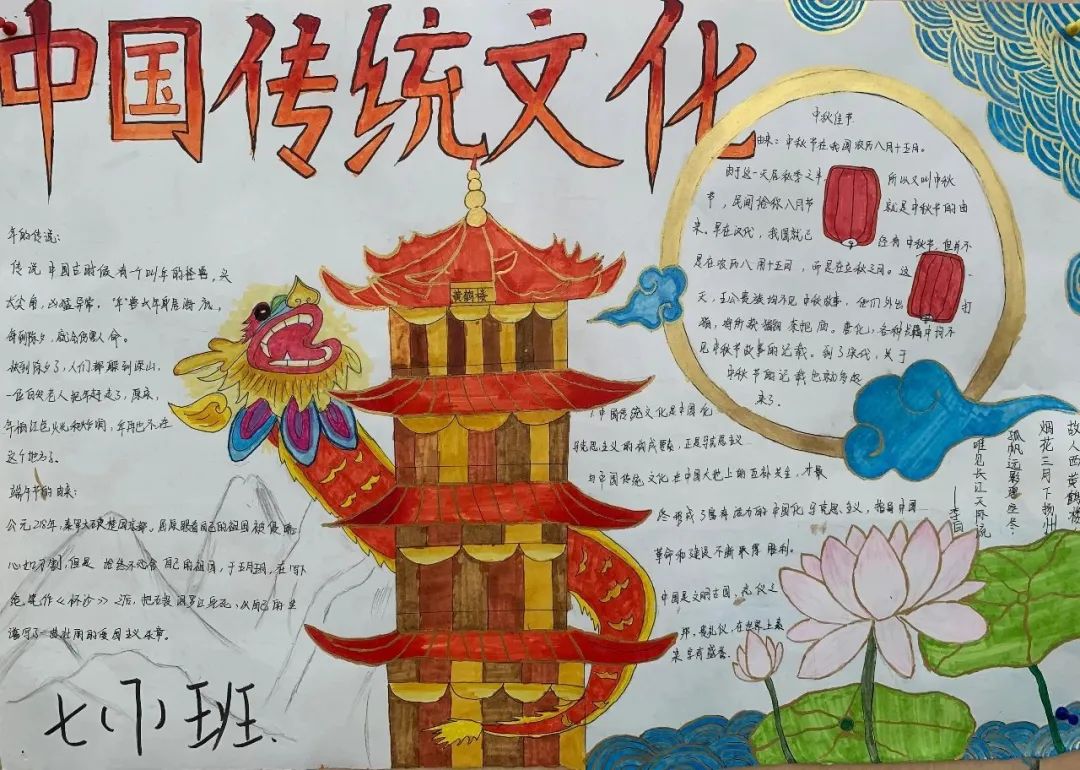 中国传统文化
年的传说:
传说中国古时候有一个叫年的怪兽,头
大尖角,凶猛异常,年兽长年居海底,
每到除夕,就会伤害人命。
快到除夕了,人们都躲到深山,
一位白发老人把年赶走了,原来,
年怕红色火光和炸响,年再也不在
这个地方了。
端午节的由来:
公元278年,秦军大破楚国京都,屈原眼看自己的祖国被侵略
心如刀割,但是始终不忍舍自己的祖国,于五月五日,在写下
绝笔作《怀沙》之后,抱石投汨罗江身死,以自己的生
谱写了一曲壮丽的爱国主义乐章。
七(1)班
黄鹤楼
中秋佳节
由来:中秋节在我国农历八月十五日。
由于这一天居秋季之半
所以又叫中秋
节,民间俗称八月节
就是中秋节的由
来。早在汉代,我国就已
经有中秋节,但并不
是在农历八月十五日,而是在立秋之日。这
天,王公贵族
中秋故事,他们外出
打
见中秋节故事的记载。到了宋代,关于
中秋节的记载也就多起
来了。
中国传统文化是中国化
马克思主义的构成要素,正是马克思主义
与中国传统文化在中国大地上的互补共生,才最
终形成了富有活力的中国化马克思主义,指导中国
革命和建设不断取得胜利。
中国是文明古国,礼仪之
邦,重礼仪,在世界上素
来享有盛誉。
故人西辞黄鹤楼
烟花三月下扬州
孤帆远影碧空尽
唯见长江天际流
——李白